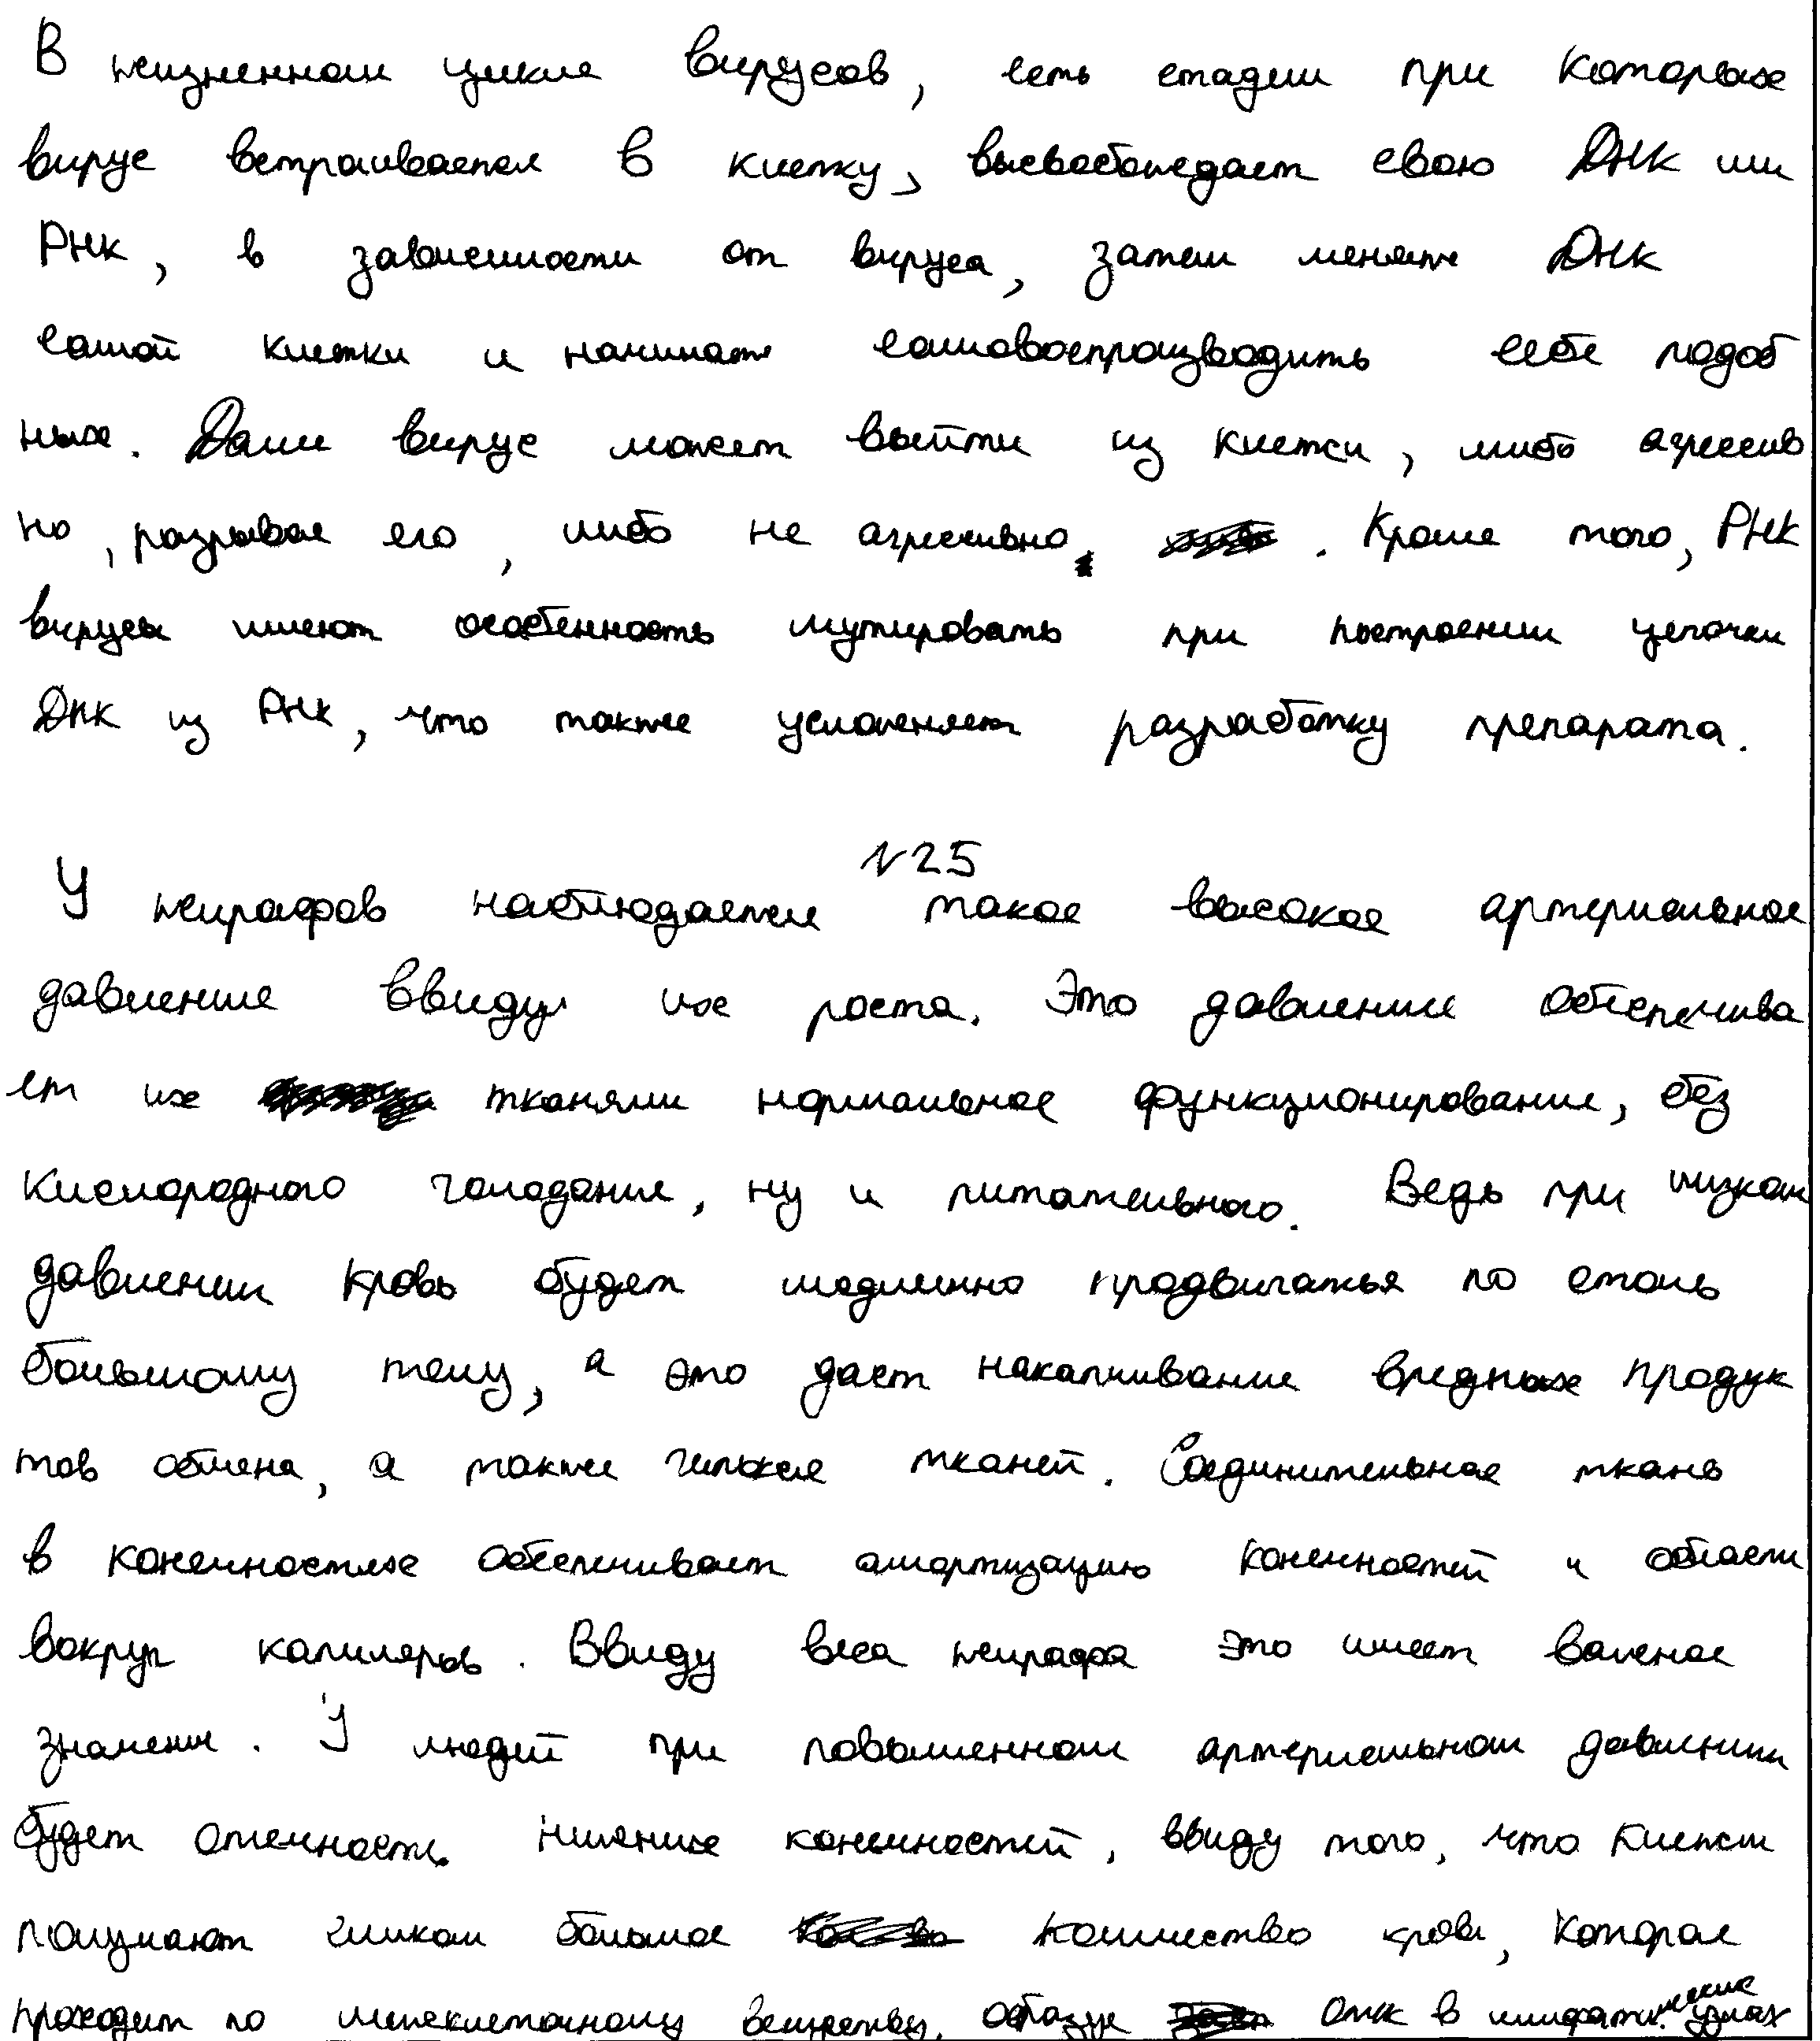 В жизненном цикле вирусов, есть стадии при которых
вирус встраивается в клетку, высвобождает свою ДНК или
РНК, в зависимости от вируса, затем меняет ДНК
самой клетки и начинает самовоспроизводить себе подоб
ных. Далее вирус может выйти из клетки, либо агрессив
но, разрывая его, либо не агрессивно. Кроме того, РНК
вирусы имеют особенность мутировать при построении цепочки
ДНК из РНК, что также усложняет разработку препарата.
№25
У жирафов наблюдается такое высокое артериальное
давление ввиду их роста. Это давление обеспечива
ет их тканями нормальное функционирование, без
кислородного голодание, ну и питательного. Ведь при низком
давлении кровь будет медленно продвигаться по столь
большому телу, а это дает накапливание вредных продук
тов обмена, а также гипоксия тканей. Соединительная ткань
в конечностях обеспечивает амортизацию конечностей и области
вокруг капиляров. Ввиду веса жирафа это имеет важное
значение. У людей при повышенном артериальном давлении
будет отечность нижние конечностей, ввиду того, что клетки
получают слишком большое количество крови, которая
проходит по межклеточному веществу, образуя отек в лимфатических узлах